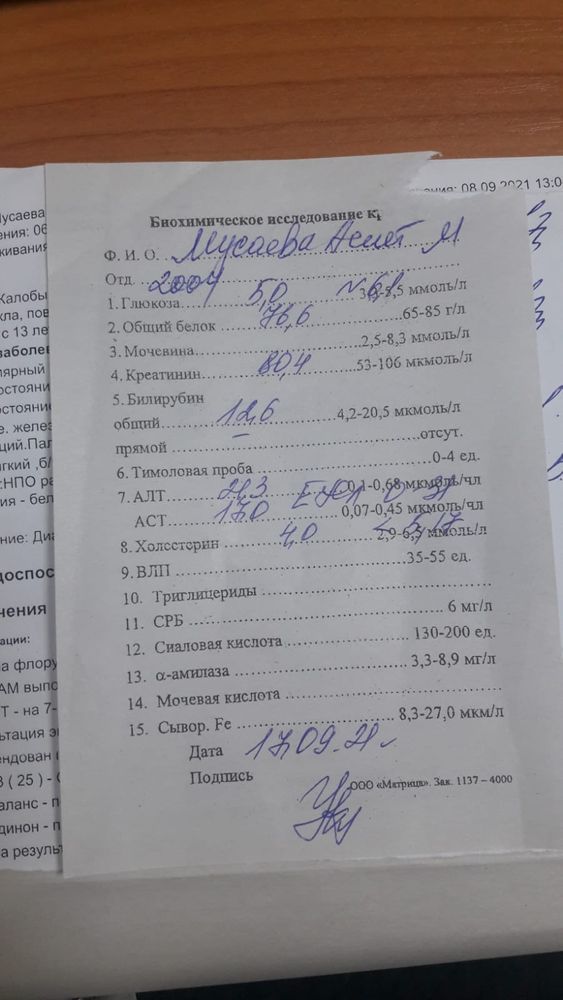 ения: 08.09.2021 13:0
Биохимическое исследование к
Ф. И. О. Мусаева Асият М
Отд. 2004
1. Глюкоза 5,0 3,3-5,5 ммоль/л
2. Общий белок 76,6 65-85 г/л
3. Мочевина 2,5-8,3 ммоль/л
4. Креатинин 80,4 53-106 мкмоль/л
5. Билирубин
общий 12,6 4,2-20,5 мкмоль/л
прямой – отсут.
6. Тимоловая проба 0-4 ед.
7. АЛТ 0,1-0,68 мкмоль/чл
АСТ 17,0 0,07-0,45 мкмоль/чл
8. Холестерин 4,0 2,9-6,5 ммоль/л
9. ВЛП 35-55 ед.
10. Триглицериды
11. СРБ 6 мг/л
12. Сиаловая кислота 130-200 ед.
13. α-амилаза 3,3-8,9 мг/л
14. Мочевая кислота
15. Сывор. Fe 8,3-27,0 мкм/л
Дата 17.09.21
Подпись
ООО «Матрица». Зак. 1137 – 4000
Мусаева
ения: 06
живания
Жалобы
кла, пов
с 13 ле
заболев
лярный
остояни
остояние
е. желез
ций.Пал
гкий ,б/
:НПО ра
ия - бел
ние: Диа
доспос
чения
ации:
а флору
АМ выпо
Т - на 7-
ьтация э
ендован
( 25 ) -
аланс - п
динон - п
а результ